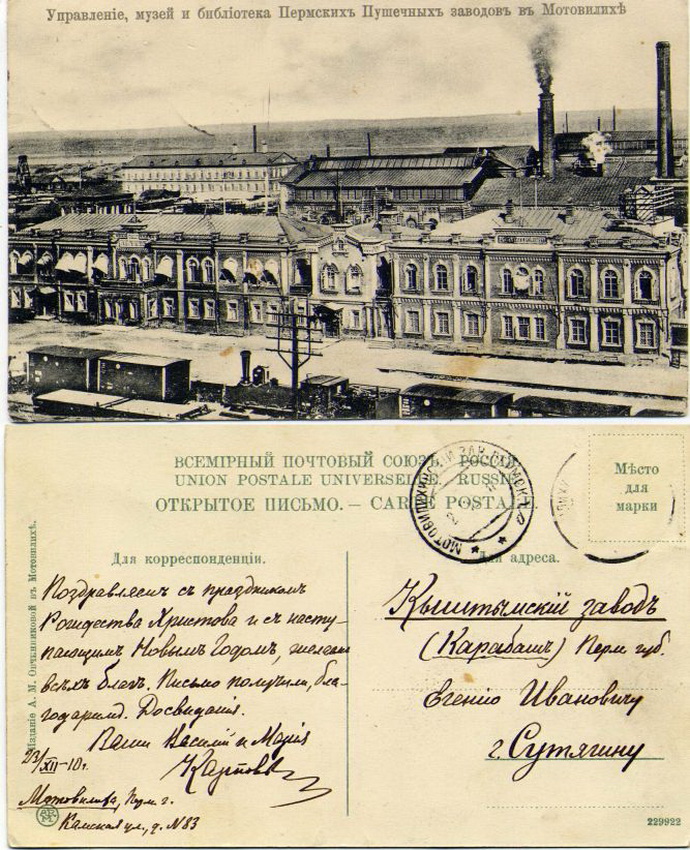 Управленіе, музей и библіотека Пермскихъ Пушечныхъ заводовъ въ Мотовилихѣ
ВСЕМІРНЫЙ ПОЧТОВЫЙ СОЮЗЪ. РОССІЯ.
UNION POSTALE UNIVERSELLE. RUSSIE.
ОТКРЫТОЕ ПИСЬМО. — CARTE POSTALE.
Мѣсто
для
марки
МОТОВИЛИХ
Для корреспонденціи.
Поздравляемъ съ праздникомъ
Рождества Христова и съ насту-
пающимъ Новымъ Годомъ, желаемъ
всѣхъ благъ. Письмо получили, бла-
годаримъ. Досвиданія.
Ваши Василій и Марія
Карповы
23/XII-10г.
Мотовилиха, Перм. г.
Камская ул., д. N83
Изданіе А. М. Овчинниковой въ Мотовилихѣ.
Для адреса.
Кыштымскій заводъ
(Карабашъ) Перм. губ.
Евгенію Ивановичу
г. Сутягину
229922